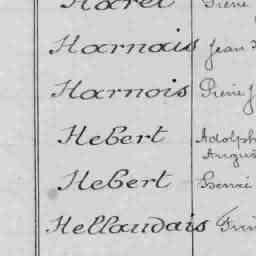 Harel Pierre
Harnais Jean
Harnois Pierre J
Hebert Adolph
August
Hebert Henri
Hellaudais Fran